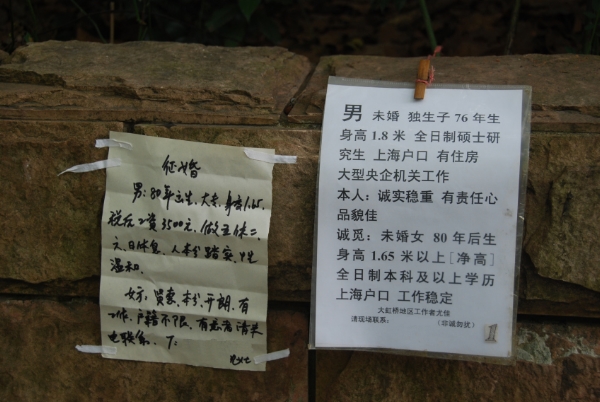 征婚
男：80年出生，大专，身高1.65，
税后工资3500元，做五休二，
六、日休息，人本分踏实，性
温和。
女方：贤惠，本分，开朗，有
工作，户籍不限，有意者请来
电联系。
男 未婚 独生子 76 年生
身高 1.8 米 全日制硕士研
究生 上海户口 有住房
大型央企机关工作
本人：诚实稳重 有责任心
品貌佳
诚觅：未婚女 80 年后生
身高 1.65 米以上 [净高]
全日制本科及以上学历
上海户口 工作稳定
大虹桥地区工作者尤佳
请现场联系： （非诚勿扰）
1